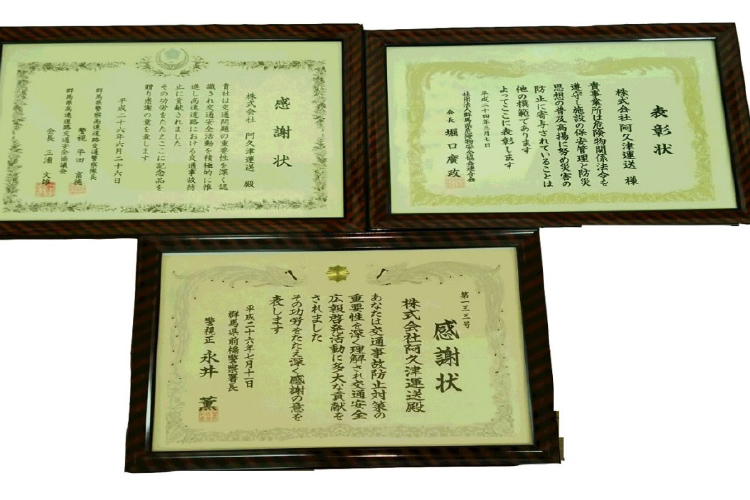 感謝状
株式会社 阿久津運送 殿
貴社は交通問題の重要性を深く認
識され交通安全活動を積極的に推
進し高速道路における交通事故防
止に貢献されました
その功労をたたえここに記念品を
贈り感謝の意を表します
平成二十六年六月二十六日
群馬県警察高速道路交通警察隊長
警視 平田 富徳
群馬県高速道路交通安全協議会
会長 三浦 文雄
表彰状
株式会社阿久津運送 様
貴事業所は危険物関係法令を
遵守し施設の保安管理と防災
思想の普及高揚に努め災害の
防止に寄与されていることは
他の模範であります
よってここに表彰します
平成二十四年三月七日
会長 堀口 廣政
感謝状
株式会社阿久津運送殿
あなたは交通事故防止対策の
重要性を深く理解され交通安全
広報啓発活動に多大な貢献を
されました
その功労をたたえ深く感謝の意を
表します
平成二十六年七月十一日
群馬県前橋警察署長
警視正 永井 薫